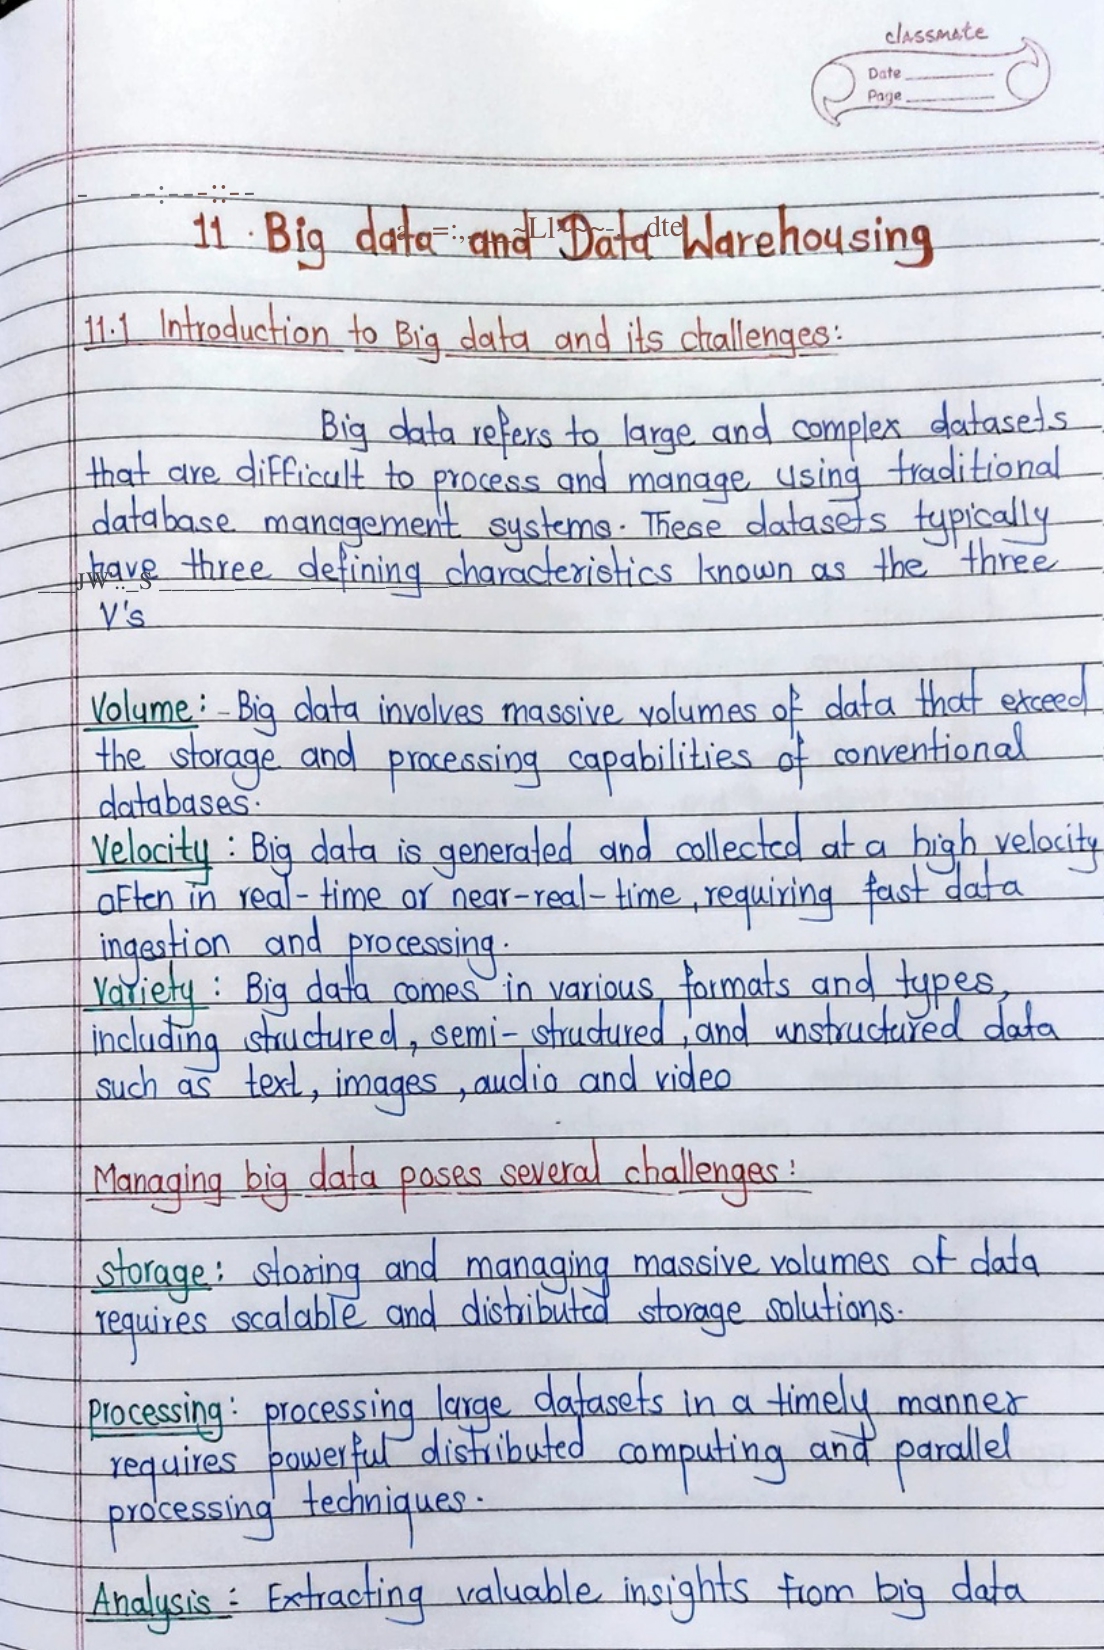 classmate
Date
Page
11. Big data and Data Warehousing
11.1 Introduction to Big data and its challenges:
Big data refers to large and complex datasets
that are difficult to process and manage using traditional
database management systems. These datasets typically
have three defining characteristics known as the three
V's
Volume: - Big data involves massive volumes of data that exceed
the storage and processing capabilities of conventional
databases.
Velocity : Big data is generated and collected at a high velocity
often in real-time or near-real-time, requiring fast data
ingestion and processing.
Variety : Big data comes in various formats and types,
including structured, semi-structured, and unstructured data
such as text, images, audio and video
Managing big data poses several challenges:
storage: storing and managing massive volumes of data
requires scalable and distributed storage solutions.
processing: processing large datasets in a timely manner
requires powerful distributed computing and parallel
processing techniques.
Analysis: Extracting valuable insights from big data